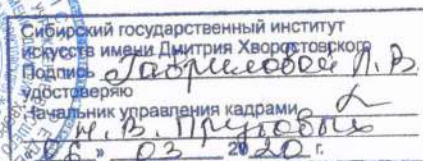 Сибирский государственный институт
искусств имени Дмитрия Хворостовского
Подпись Гавриловой Л. В.
удостоверяю
Начальник управления кадрами
Н. В.
« 06 » 03 2020 г.